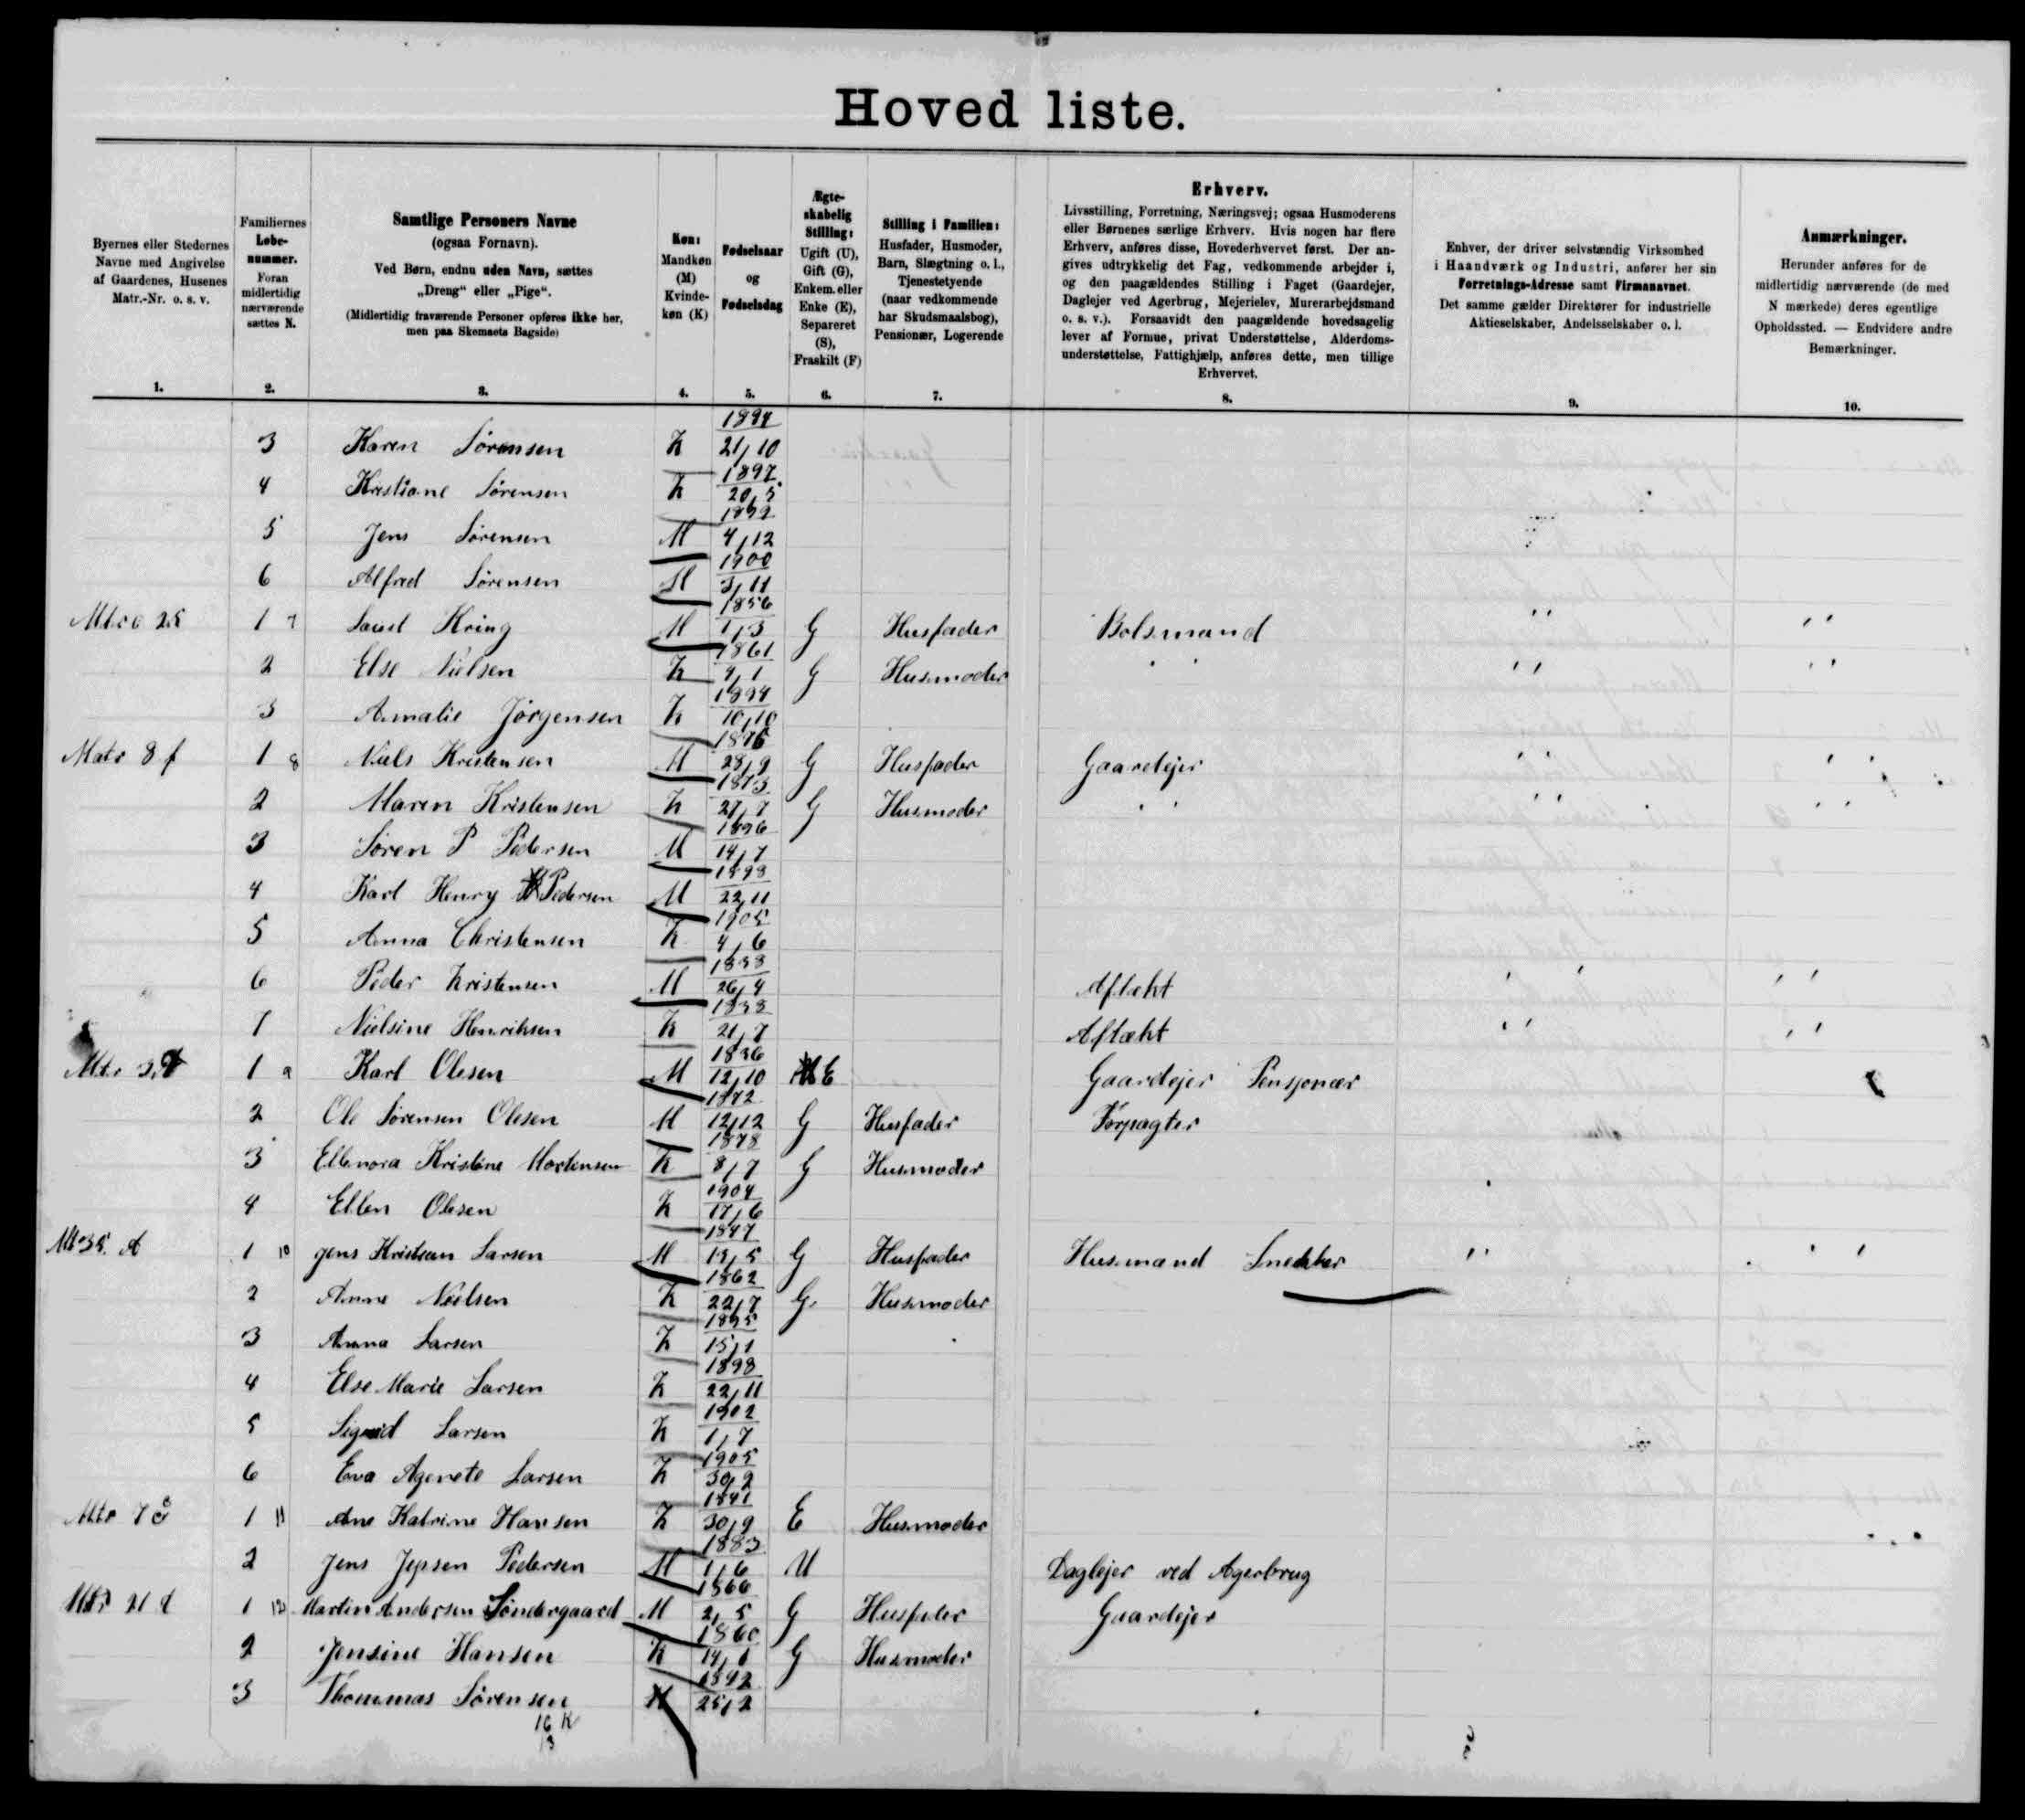 Hoved liste.
Byernes eller Stedernes Navne med Angivelse af Gaardenes, Husenes Matr.-Nr. o. s. v.
1.
Familiernes Løbe-nummer. Foran midlertidig nærværende sættes N.
2.
Samtlige Personers Navne (ogsaa Fornavn). Ved Børn, endnu uden Navn, sættes „Dreng“ eller „Pige“. (Midlertidig fraværende Personer opføres ikke her, men paa Skemaets Bagside)
3.
Køn: Mandkøn (M) Kvinde-køn (K)
4.
Fødselsaar og Fødselsdag
5.
Ægte-skabelig Stilling: Ugift (U), Gift (G), Enkem. eller Enke (E), Separeret (S), Fraskilt (F)
6.
Stilling i Familien: Husfader, Husmoder, Barn, Slægtning o. l., Tjenestetyende (naar vedkommende har Skudsmaalsbog), Pensionær, Logerende
7.
Erhverv. Livsstilling, Forretning, Næringsvej; ogsaa Husmoderens eller Børnenes særlige Erhverv. Hvis nogen har flere Erhverv, anføres disse, Hovederhvervet først. Der an-gives udtrykkelig det Fag, vedkommende arbejder i, og den paagældendes Stilling i Faget (Gaardejer, Daglejer ved Agerbrug, Mejerielev, Murerarbejdsmand o. s. v.). Forsaavidt den paagældende hovedsagelig lever af Formue, privat Understøttelse, Alderdoms-understøttelse, Fattighjælp, anføres dette, men tillige Erhvervet.
8.
Enhver, der driver selvstændig Virksomhed i Haandværk og Industri, anfører her sin Forretnings-Adresse samt Firmanavnet. Det samme gælder Direktører for industrielle Aktieselskaber, Andelsselskaber o. l.
9.
Anmærkninger. Herunder anføres for de midlertidig nærværende (de med N mærkede) deres egentlige Opholdssted. — Endvidere andre Bemærkninger.
10.
3 Karen Sørensen K 1894 21/10
4 Kristiane Sørensen K 1897 20/5
5 Jens Sørensen M 1899 4/12
6 Alfred Sørensen M 1900 3/11
25 1 7 Kring M 1856 1/3 G Husfader Bolsmand " "
2 Else Nielsen K 1861 4/1 G Husmoder " " "
3 Amalie Jørgensen K 1894 10/10
Matr 8 f 1 8 Niels Kristensen M 1876 28/9 G Husfader Gaardejer " "
2 Maren Kristensen K 1873 27/7 G Husmoder " " "
3 Søren P Pedersen M 1896 14/7
4 Karl Henry Pedersen M 1898 22/11
5 Anna Christensen K 1905 4/6
6 Peder Kristensen M 1838 26/4 Aftækt " "
7 Nielsine Henriksen K 1838 21/7 Aftækt " "
Mtr 1 9 Karl Olesen M 1836 12/10 E Gaardejer Pensjonær
2 Ole Sørensen Olesen M 1872 12/12 G Husfader Forpagter
3 Ellenora Kristine Mortensen K 1878 8/7 G Husmoder
4 Ellen Olesen K 1904 17/6
Mtr 35 A 1 10 Jens Kristian Larsen M 1847 15/5 G Husfader Husmand Snedker " "
2 Anne Nielsen K 1862 22/7 G. Husmoder
3 Anna Larsen K 1895 15/1
4 Else Marie Larsen K 1898 22/11
5 Sigrid Larsen K 1902 1/7
6 Eva Agenete Larsen K 1905 30/9
Mtr 7 1 11 Ane Katrine Hansen K 1841 30/9 E Husmoder
2 Jens Jepsen Pedersen M 1883 1/6 U Daglejer ved Agerbrug
Mtr 21 d 1 12 Martin Andersen Søndergaard M 1866 2/5 G Husfader Gaardejer
2 Jensine Hansen K 1860 14/1 G Husmoder
3 Thommas Sørensen M 1892 25/2
16 K
13